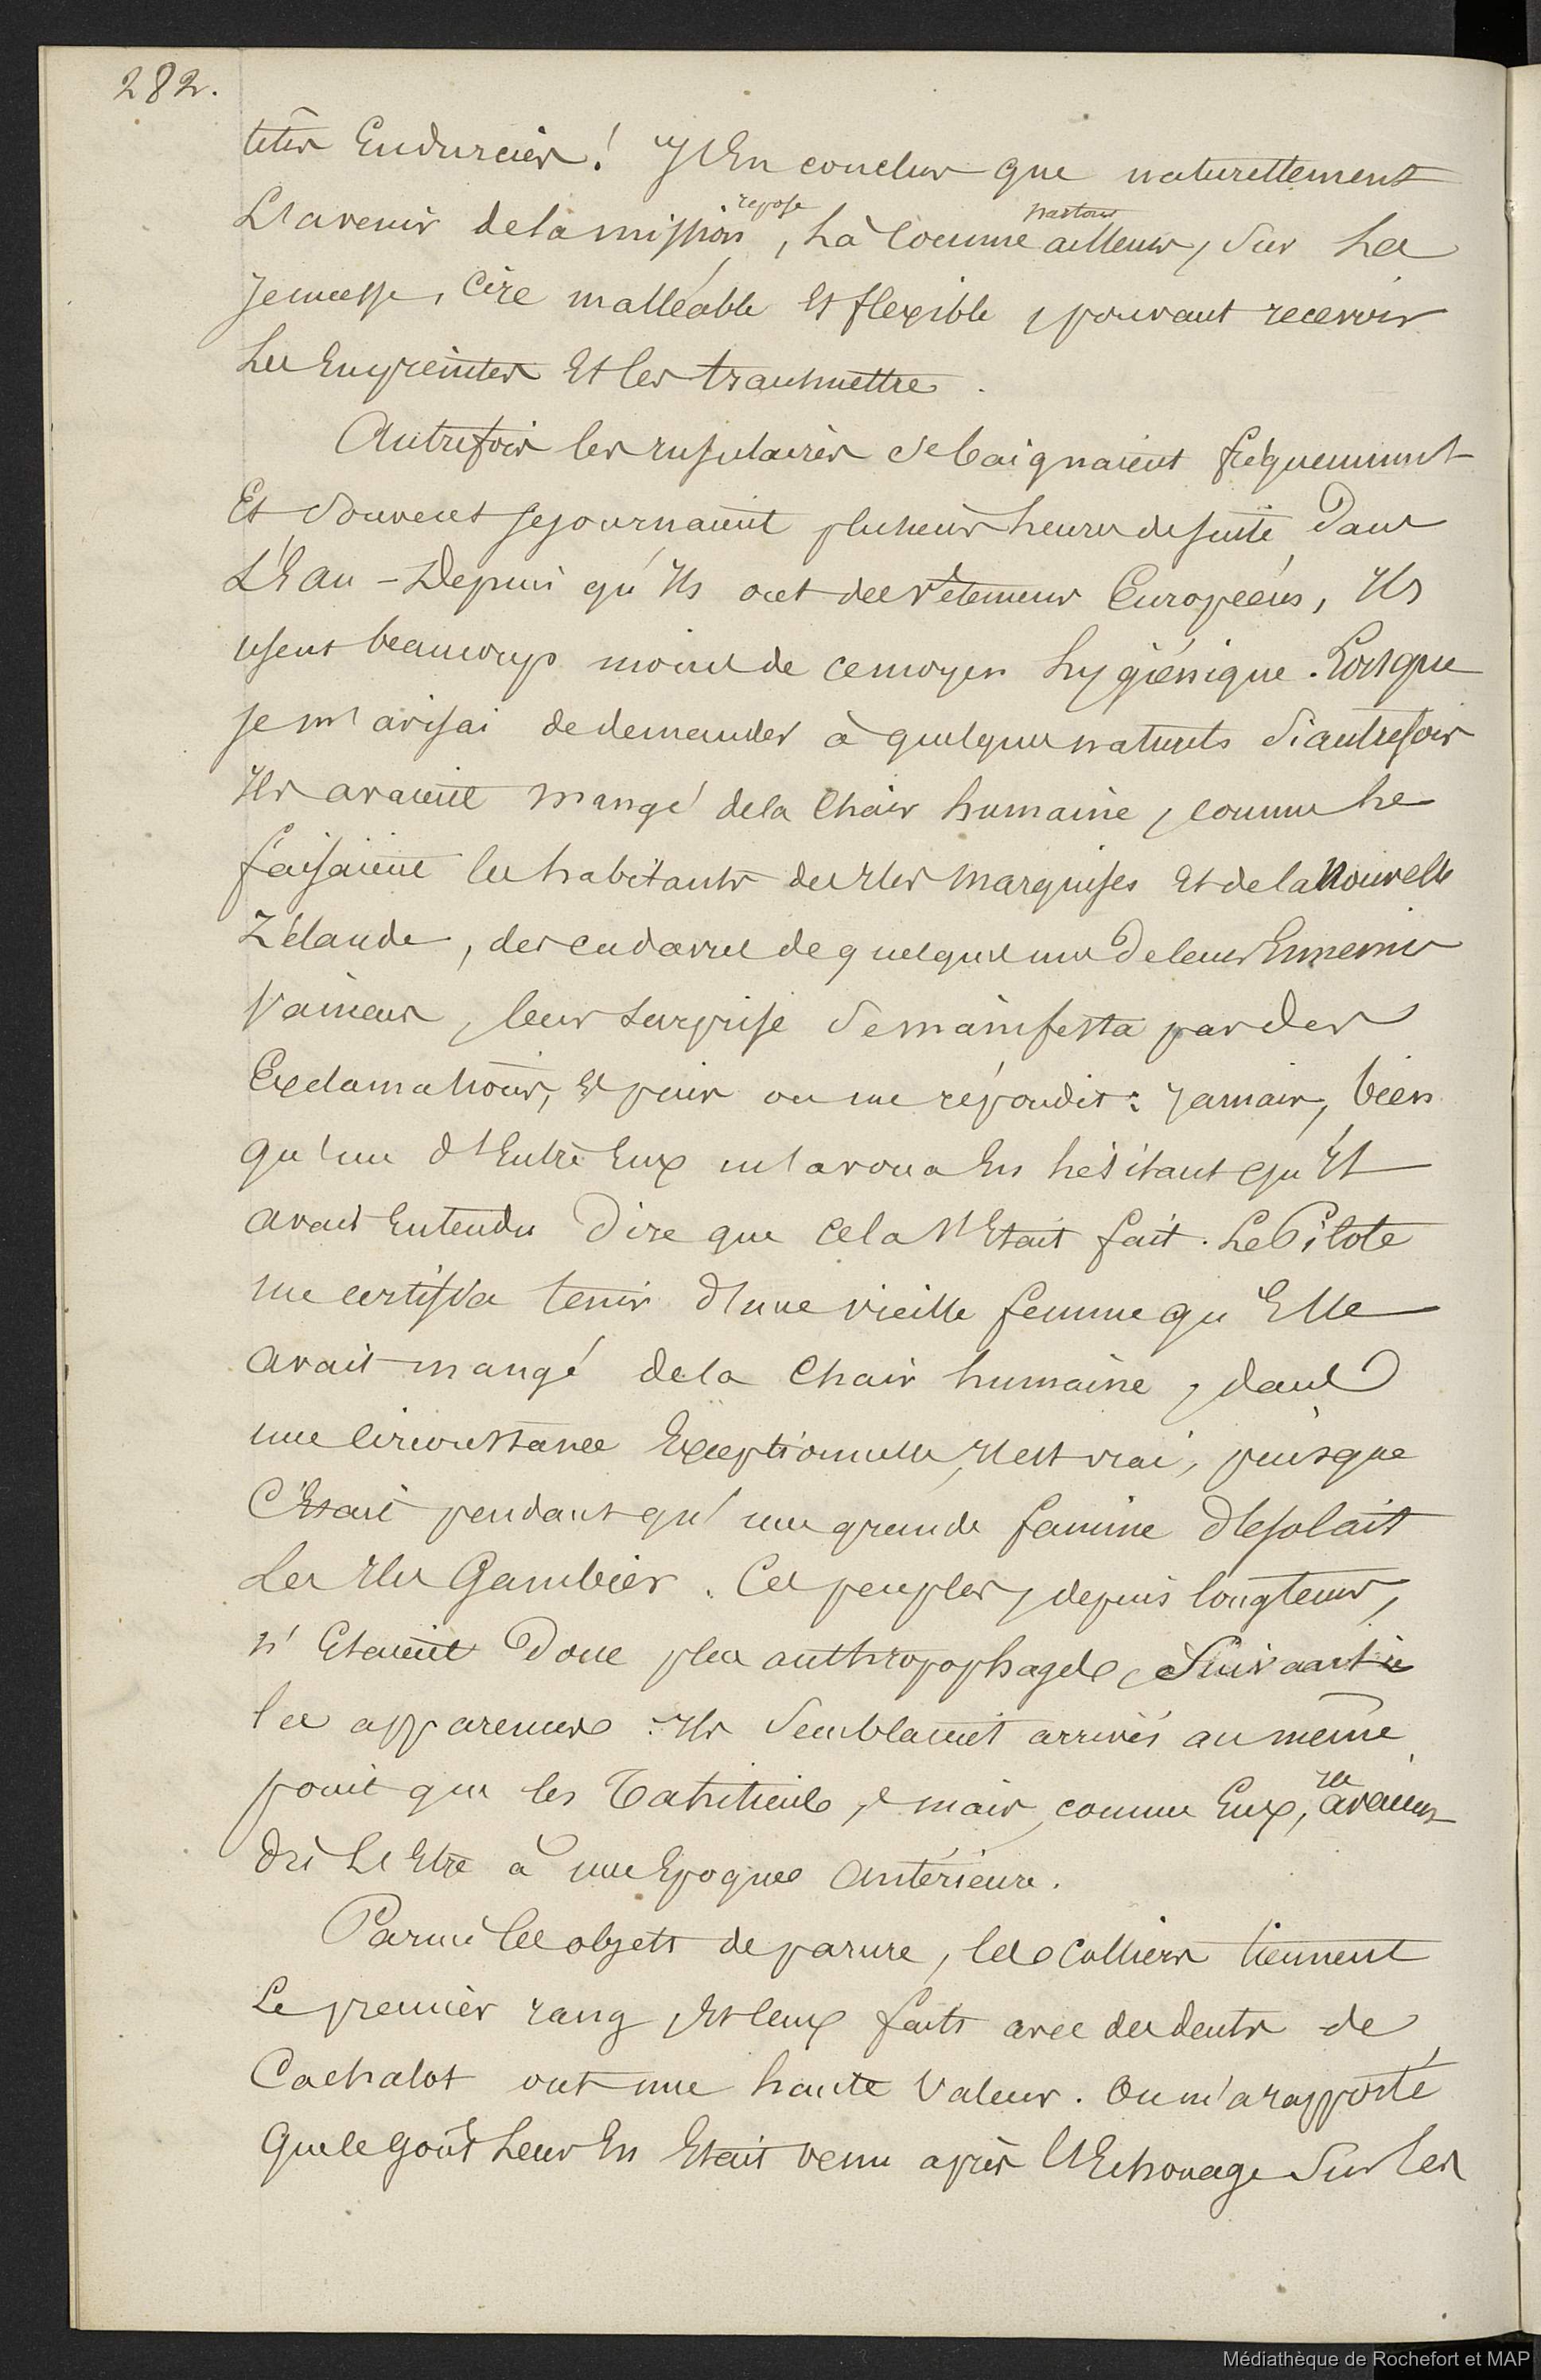 282.
têtes Endurcies! J'En conclus que naturellement
L'avenir de la mission repose, Là Comme partout ailleurs, Sur La
Jeunesse, Cire malléable Et flexible, pouvant recevoir
Les Empreintes Et les transmettre.
Autrefois les insulaires Se baignaient fréquemment
Et Souvent séjournaient plusieurs heures de suite Dans
L'Eau - Depuis qu'Ils ont des vêtements Européens, Ils
usent beaucoup moins de ce moyen hygiénique. Lorsque
je m'avisai de demander à quelques naturels Si autrefois
Ils avaient mangé de la Chair humaine, comme Le
faisaient les habitants des Iles Marquises Et de la Nouvelle
Zélande, des cadavres de quelques uns De leurs Ennemis
Vaincus, leur surprise Se manifesta par des
Exclamations, Et puis on me répondit: Jamais, bien
qu'un d'Entre Eux m'avoua En hésitant qu'Il
avait Entendu Dire que Cela S'Etait fait. Le Pilote
me certifia tenir d'une vieille femme qu'Elle
avait mangé de la Chair humaine, dans
une Circonstance Exceptionnelle, Il est vrai, puisque
C'Etait pendant qu'une grande famine désolait
Les Iles Gambier. Ces peuples, depuis longtems,
n'Etaient Donc plus anthropophages, Suivant
les apparences. Ils Semblaient arrivés au même
point que les Tahitiens, mais, comme Eux, Ils avaient
dû L'Etre à une Epoque Antérieure.
Parmi les objets de parure, les Colliers tiennent
Le premier rang, Et Ceux faits avec des dents de
Cachalot ont une haute Valeur. On m'a rapporté
Que le goût Leur En Etait venu après l'Echouage Sur Les
Médiathèque de Rochefort et MAP